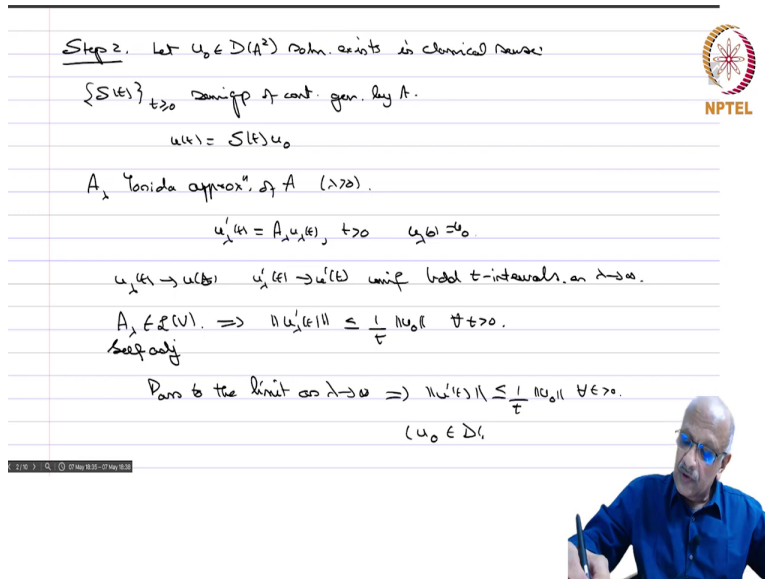 Step 2. Let u₀ ∈ D(A²) soln. exists in classical sense.
{S(t)}_{t≥0} semigp of cont. gen. by A.
u(t) = S(t)u₀
A_λ Yosida approxⁿ. of A (λ>0).
u'_λ(t) = A_λ u_λ(t), t>0 u_λ(0) = u₀.
u_λ(t) → u(t) u'_λ(t) → u'(t) unif bdd t-intervals. as λ→∞.
A_λ ∈ L(V). ⟹ ||u'_λ(t)|| ≤ 1/t ||u₀|| ∀ t>0.
Self adj
Pass to the limit as λ→∞ ⟹ ||u'(t)|| ≤ 1/t ||u₀|| ∀ t>0.
(u₀ ∈ D(
NPTEL
2/10 07 May 18:35 – 07 May 18:38